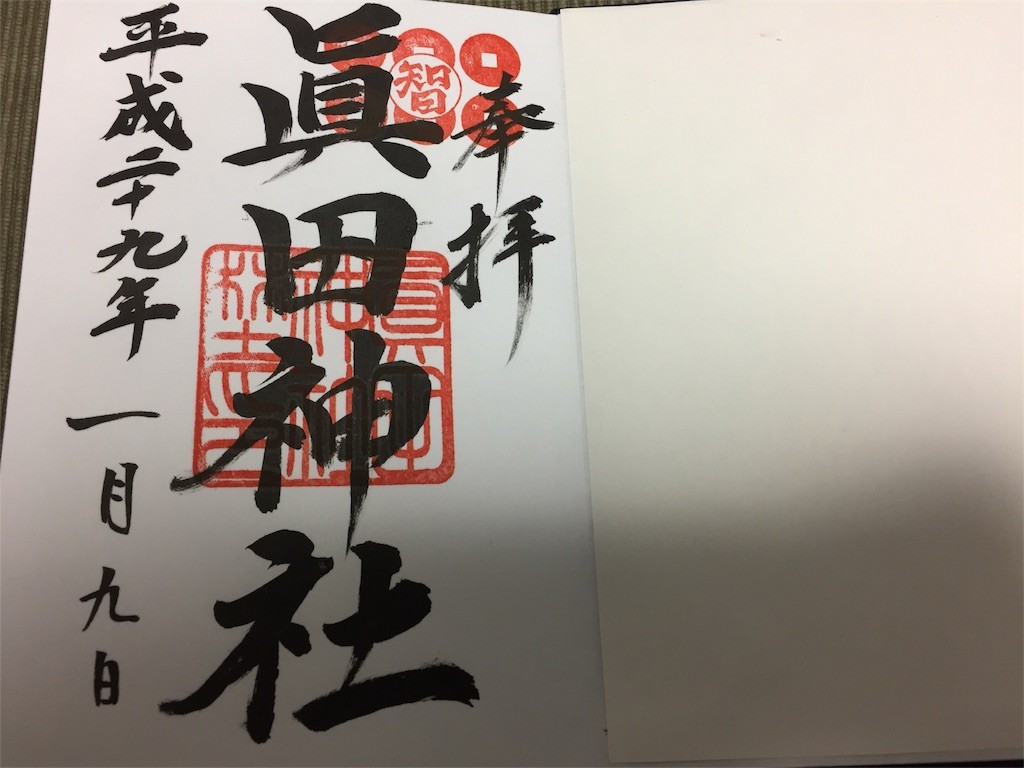 奉拝
智
眞田神社
平成二十九年一月九日